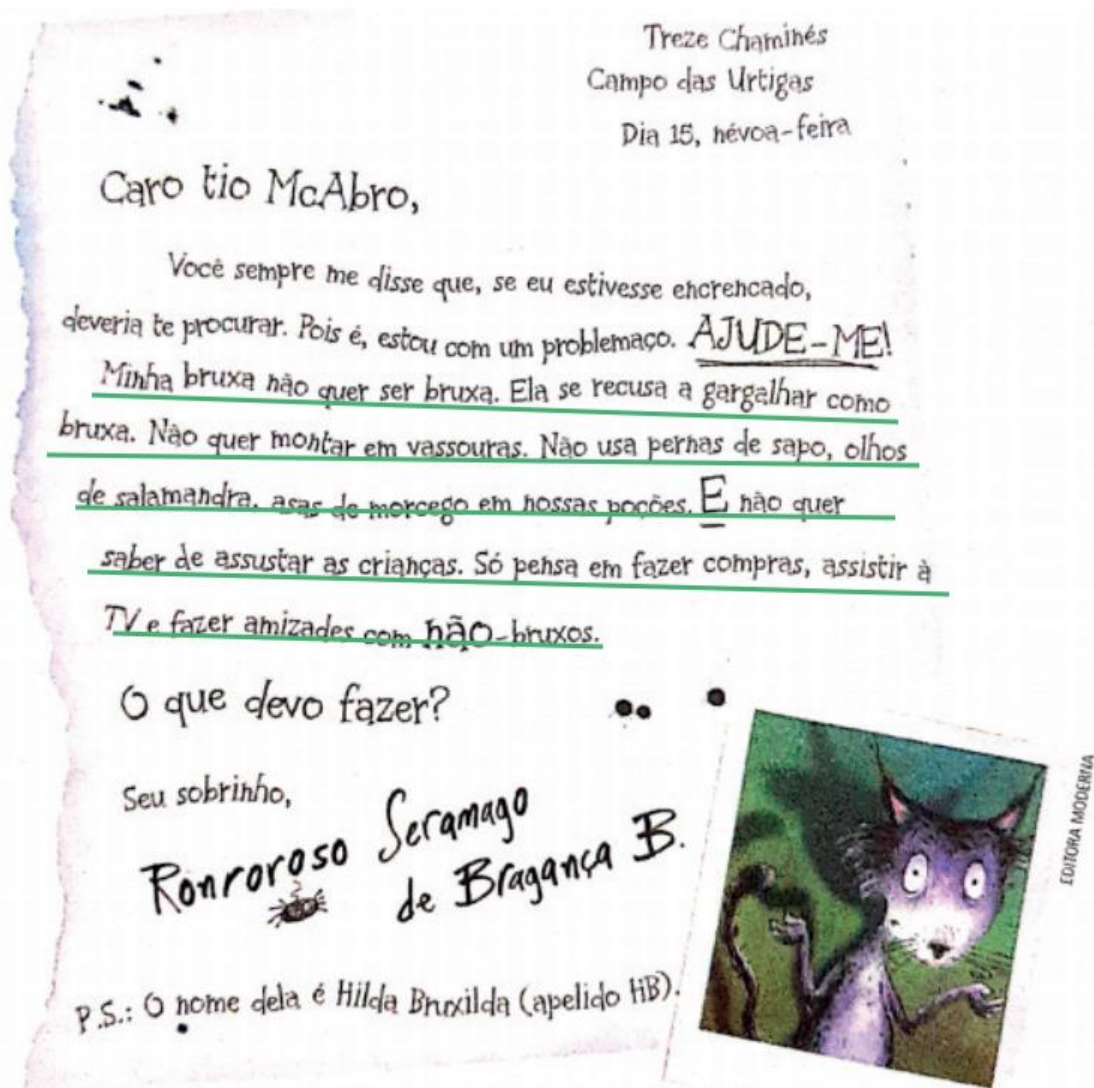 Treze Chaminés
Campo das Urtigas
Dia 15, névoa-feira
Caro tio McAbro,
Você sempre me disse que, se eu estivesse encrencado,
deveria te procurar. Pois é, estou com um problemaço. AJUDE-ME!
Minha bruxa não quer ser bruxa. Ela se recusa a gargalhar como
bruxa. Não quer montar em vassouras. Não usa pernas de sapo, olhos
de salamandra, asas de morcego em nossas poções. E não quer
saber de assustar as crianças. Só pensa em fazer compras, assistir à
TV e fazer amizades com não-bruxos.
O que devo fazer?
Seu sobrinho,
Ronroroso Seramago
de Bragança B.
P.S.: O nome dela é Hilda Bruxilda (apelido HB).
EDITORA MODERNA